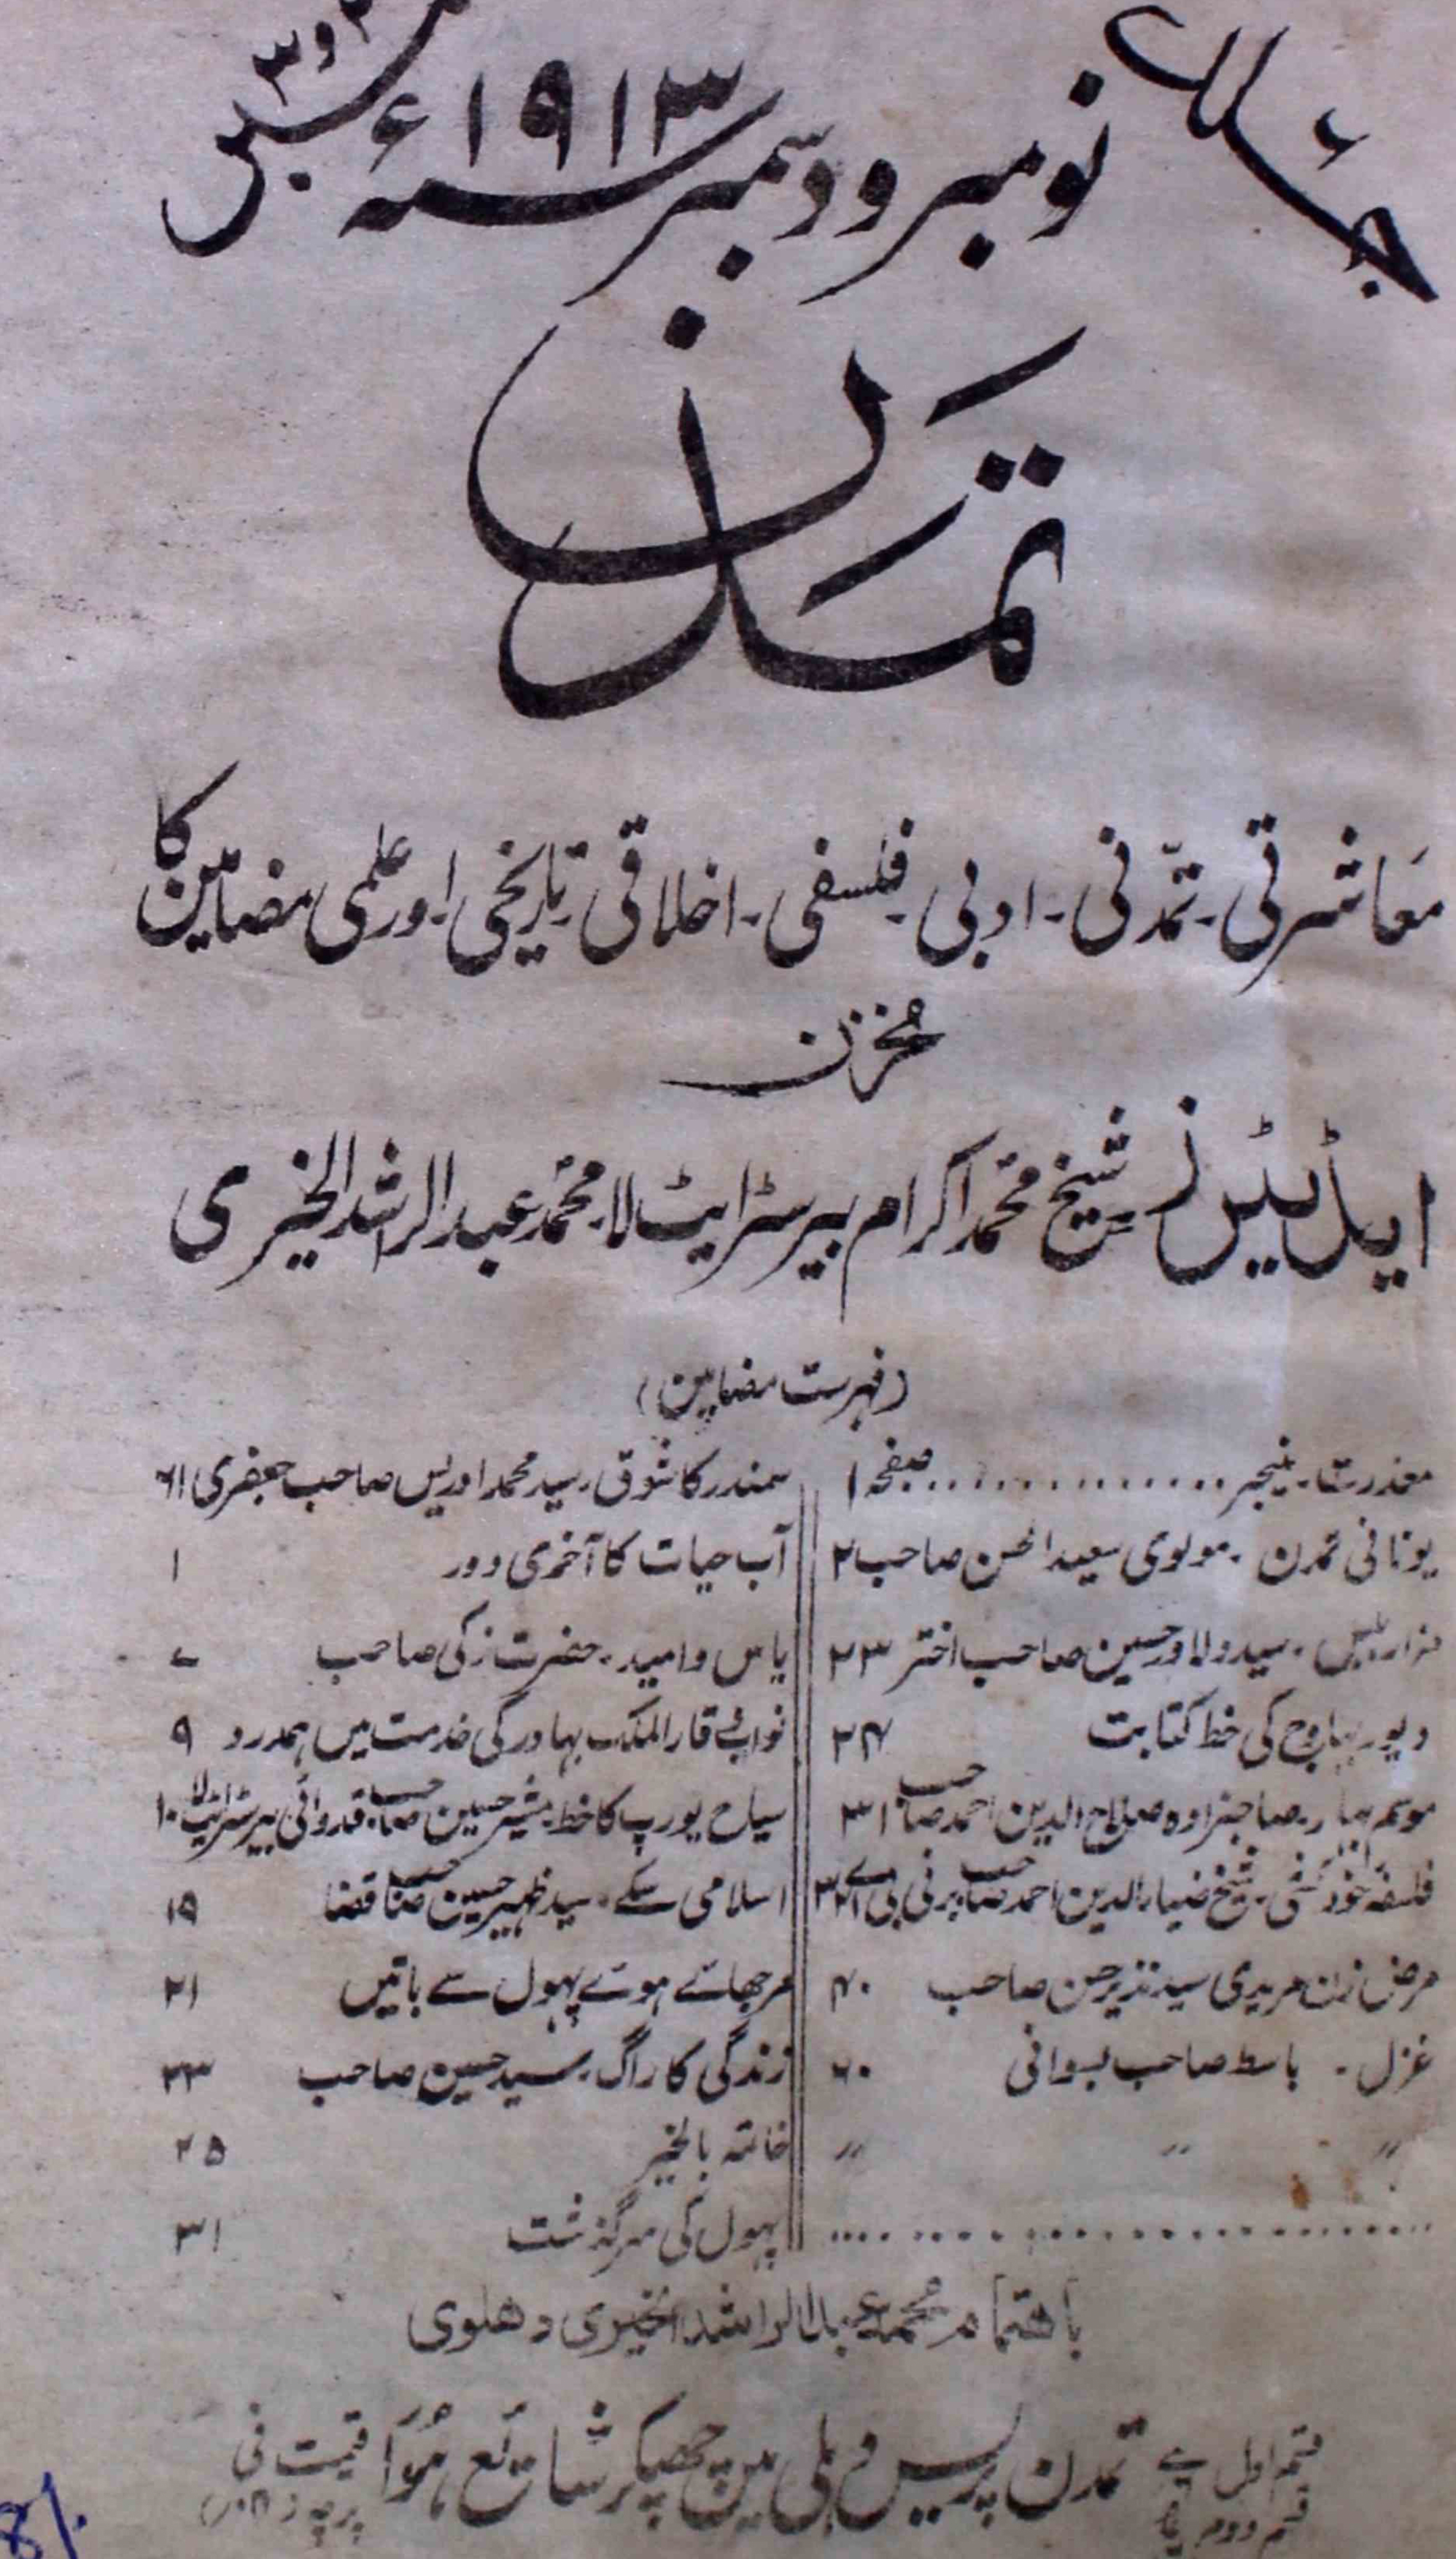 جلد
نومبر و دسمبر سنہ ۱۹۱۳ء
نمبر
۳
تمدن
معاشرتی۔ تمدّنی۔ ادبی۔ فلسفی۔ اخلاقی۔ تاریخی۔ اور علمی مضامین کا
مخزن
ایڈیٹرز۔ شیخ محمد اکرام بیرسٹر ایٹ لا۔ محمد عبدالراشد الخیری
(فہرست مضامین)
معذرت۔ منیجر .............. صفحہ ۱
یونانی تمدن۔ مولوی سعید الحسن صاحب ۲
مزار بلبل۔ سید دلاور حسین صاحب اختر ۲۳
دیور بہاوج کی خط کتابت ۲۴
موسم بہار۔ صاحبزادہ صلاح الدین احمد صاحب ۳۱
فلسفہ خودکشی۔ شیخ ضیاء الدین احمد صاحب برنی بی اے ۳۲
مرض زن مریدی سید نذیر حسن صاحب ۴۰
غزل۔ باسط صاحب بسوانی ۶۰
〃 〃 〃
..............................
سمندر کا شوق۔ سید محمد ادریس صاحب جعفری ۶۱
آب حیات کا آخری دور ۱
یاس و امید۔ حضرت زکی صاحب ۷
نواب وقار الملک بہادر کی خدمت میں ہمدرد ۹
سیاح یورپ کا خط۔ مشیر حسین صاحب قدوائی بیرسٹر ایٹ لا ۱۰
اسلامی سکے۔ سید ظہیر حسین صاحب قضا ۱۹
مرجھائے ہوئے پہول سے باتیں ۲۱
زندگی کا راگ۔ سید حسین صاحب ۲۳
خاتمہ بالخیر ۲۵
پہول کی سرگذشت ۳۱
باهتمام محمد عبدالراشد الخیری دهلوی
تمدن پریس دہلی میں چھپکر شائع ہوا
قیمت فی پرچہ
قسم اول
قسم دوم
8/.